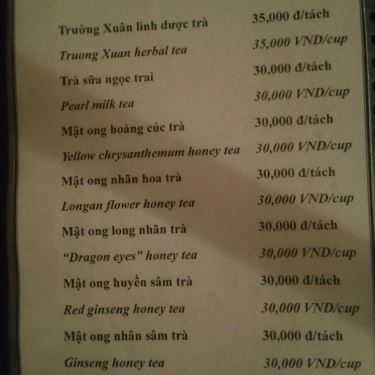 Trường Xuân linh dược trà 35,000 đ/tách
Truong Xuan herbal tea 35,000 VND/cup
Trà sữa ngọc trai 30,000 đ/tách
Pearl milk tea 30,000 VND/cup
Mật ong hoàng cúc trà 30,000 đ/tách
Yellow chrysanthemum honey tea 30,000 VND/cup
Mật ong nhãn hoa trà 30,000 đ/tách
Longan flower honey tea 30,000 VND/cup
Mật ong long nhãn trà 30,000 đ/tách
“Dragon eyes” honey tea 30,000 VND/cup
Mật ong huyền sâm trà 30,000 đ/tách
Red ginseng honey tea 30,000 VND/cup
Mật ong nhân sâm trà 30,000 đ/tách
Ginseng honey tea 30,000 VND/cup